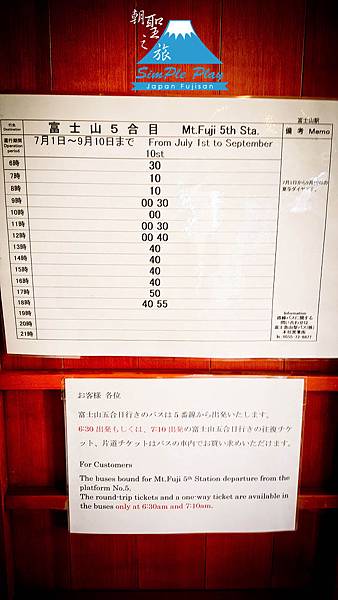 朝聖之旅
SimPle Play
Japan Fujisan
富士山駅
行先
Destination
富士山5合目 Mt.Fuji 5th Sta.
備考 Memo
運行期間
Operation period
7月1日~9月10日まで From July 1st to September 10st
6時 30
7時 10
8時 10
9時 00 30
10時 00
11時 00 30
12時 00 40
13時 40
14時 40
15時 40
16時 40
17時 50
18時 40 55
19時
20時
21時
Information
路線バスに関する
問い合わせは
本社営業所
お客様 各位
富士山五合目行きのバスは5番線から出発いたします。
6:30出発もしくは、7:10出発の富士山五合目行きの往復チケ
ット、片道チケットはバスの車内でお買い求めいただけます。
For Customers
The buses bound for Mt.Fuji 5th Station departure from the
platform No.5.
The round-trip tickets and a one-way ticket are available in
the buses only at 6:30am and 7:10am.